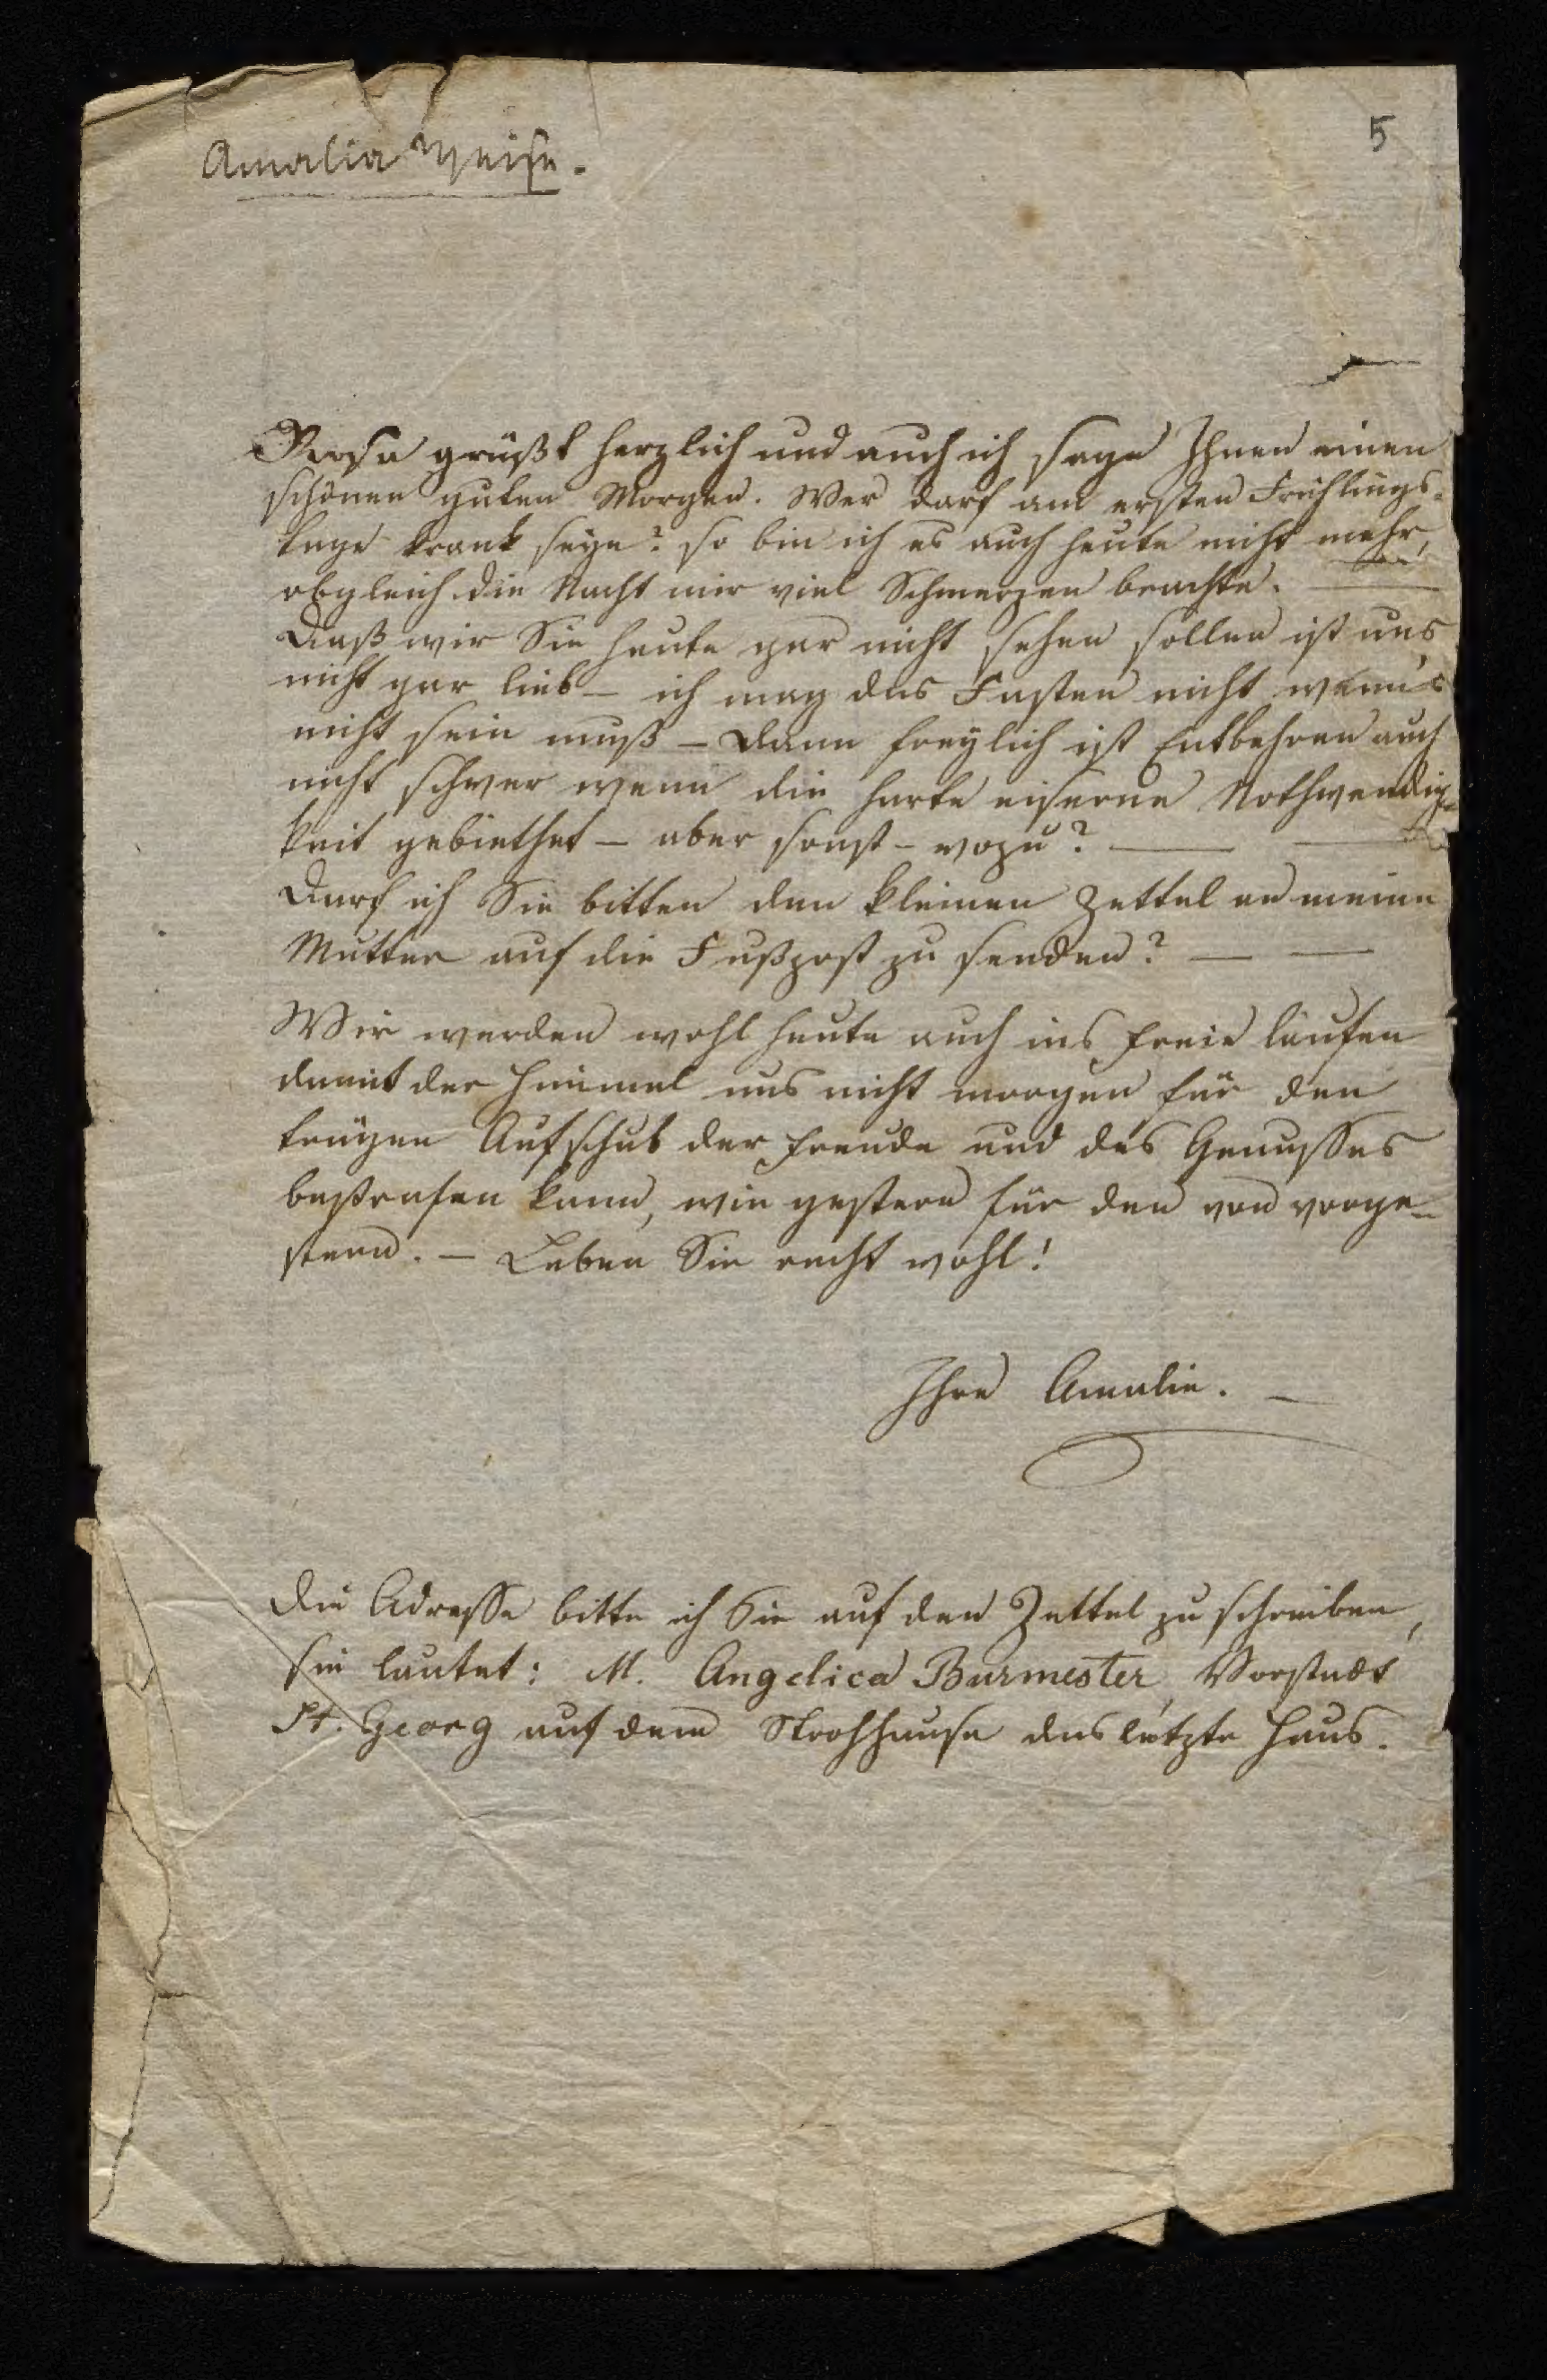 Amalia Weise.
5
Rosa grüßt herzlich und auch ich sage Ihnen einen
schönen guten Morgen. Wer darf am ersten Frühlings-
tage krank seyn? so bin ich es auch heute nicht mehr,
obgleich die Nacht mir viel Schmerzen brachte. —
Daß wir Sie heute gar nicht sehen sollen ist uns
nicht gar lieb — ich mag das Fasten nicht wenn's
nicht sein muß — dann freylich ist Entbehren auch
nicht schwer wenn die harte eiserne Nothwendig-
keit gebiethet — aber sonst — wozu? — —
Darf ich Sie bitten den kleinen Zettel an meine
Mutter auf die Fußpost zu senden? — —
Wir werden wohl heute auch ins freie laufen
damit der Himmel uns nicht morgen für den
trägen Aufschub der Freude und des Genusses
bestrafen kann, wie gestern für den von vorge-
stern. — Leben Sie recht wohl!
Ihre Amalie. —
Die Adresse bitte ich Sie auf den Zettel zu schreiben,
sie lautet: M. Angelica Burmester, Vorstadt
St. Georg auf dem Strohhause das letzte Haus.